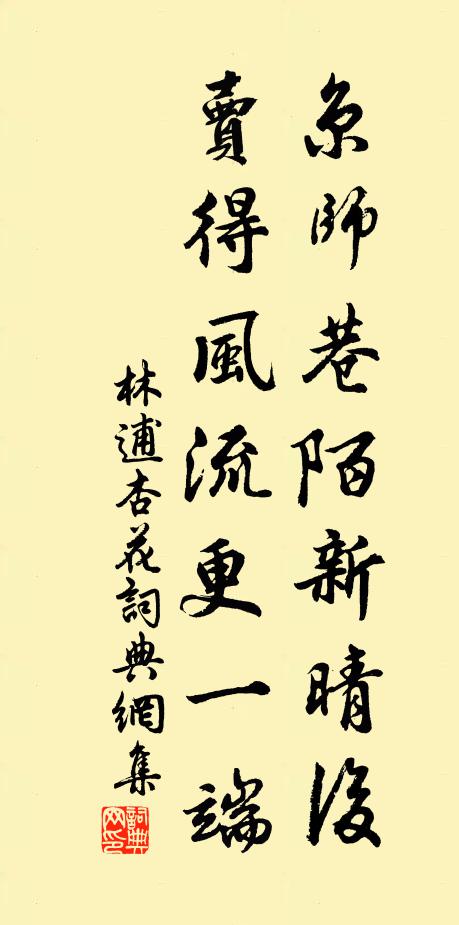 京師巷陌新晴後
賣得風流更一端
林逋杏花詞典網集
詞典網印